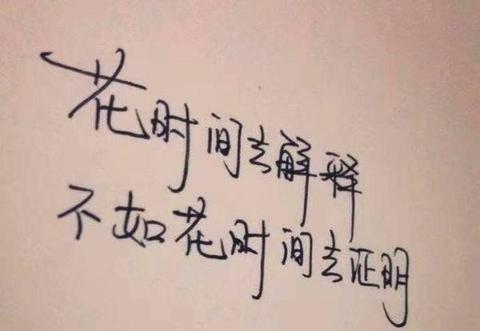 花时间去解释
不如花时间去证明